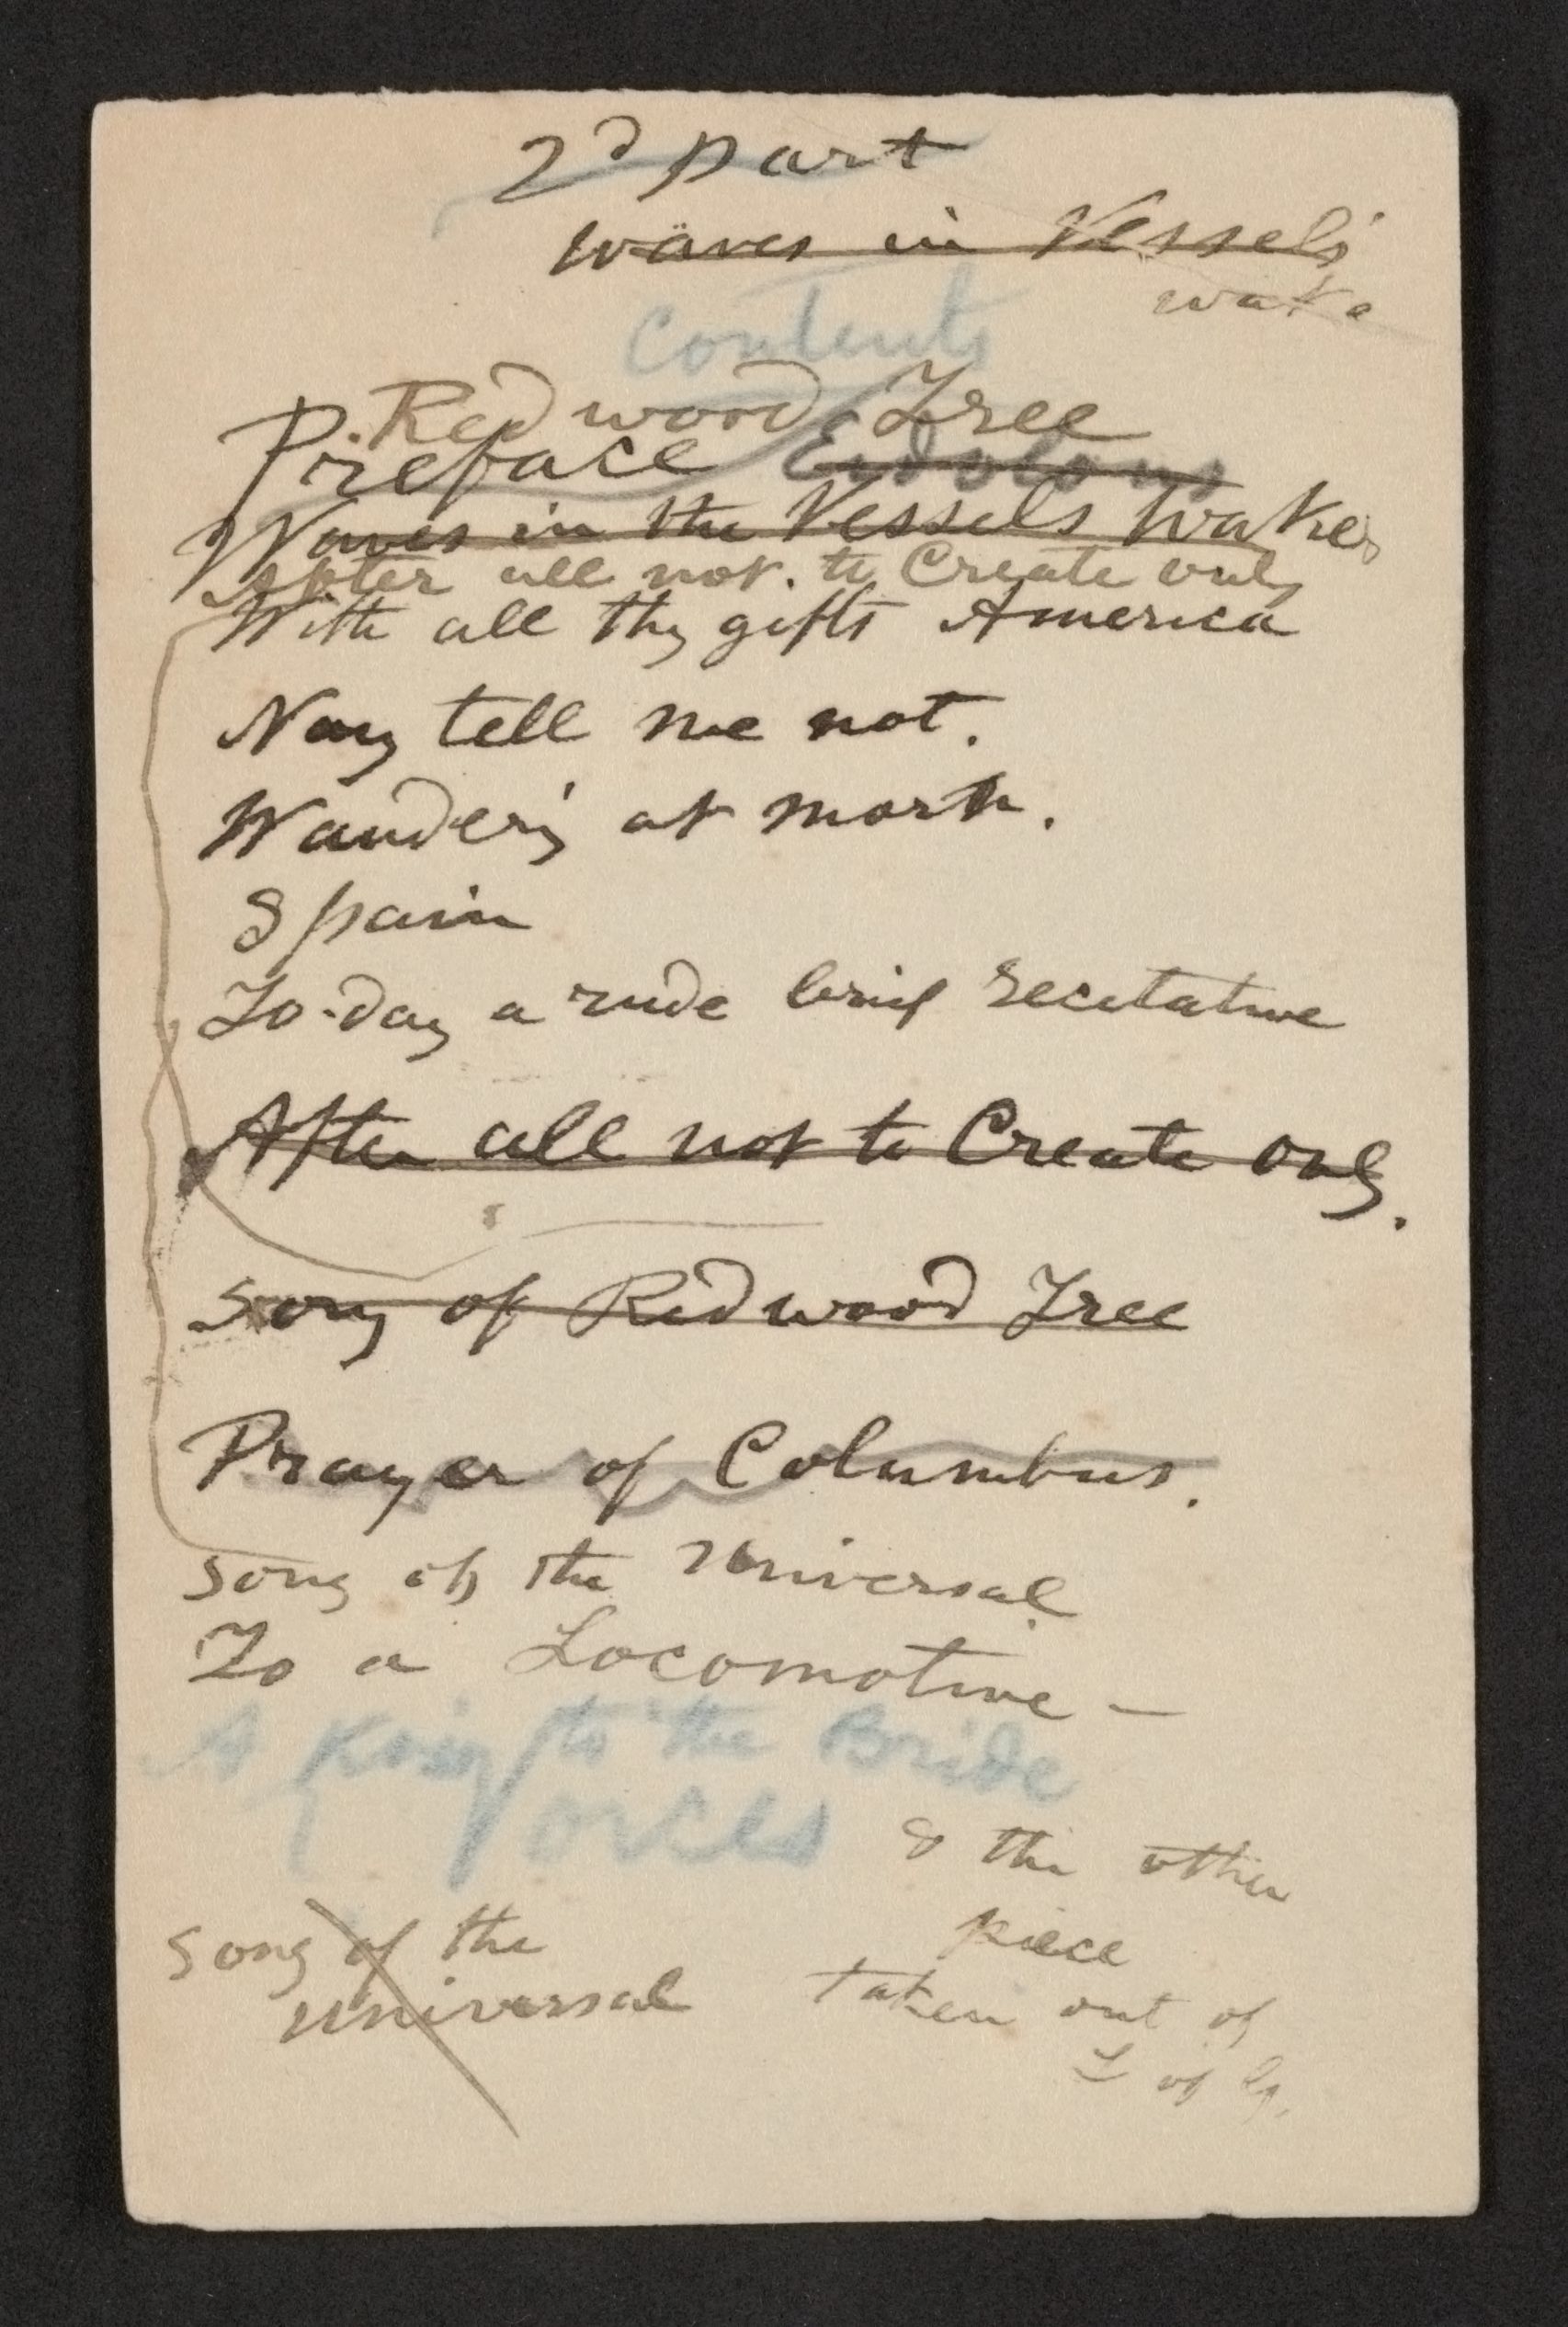 2d part
Waves in Vessels'
wake
Contents
Redwood Tree
Preface Eidolons
Waves in the Vessels Wake
After all not to Create only
With all thy gifts America
Nay tell me not.
Wand'ring at morn.
Spain
To-day a rude brief recitative
After all not to Create only.
Song of Redwood Tree
Prayer of Columbus.
Song of the Universal
To a Locomotive —
A Kiss to the Bride
Forces & the other
piece
taken out of
L of G.
Song of the
Universal